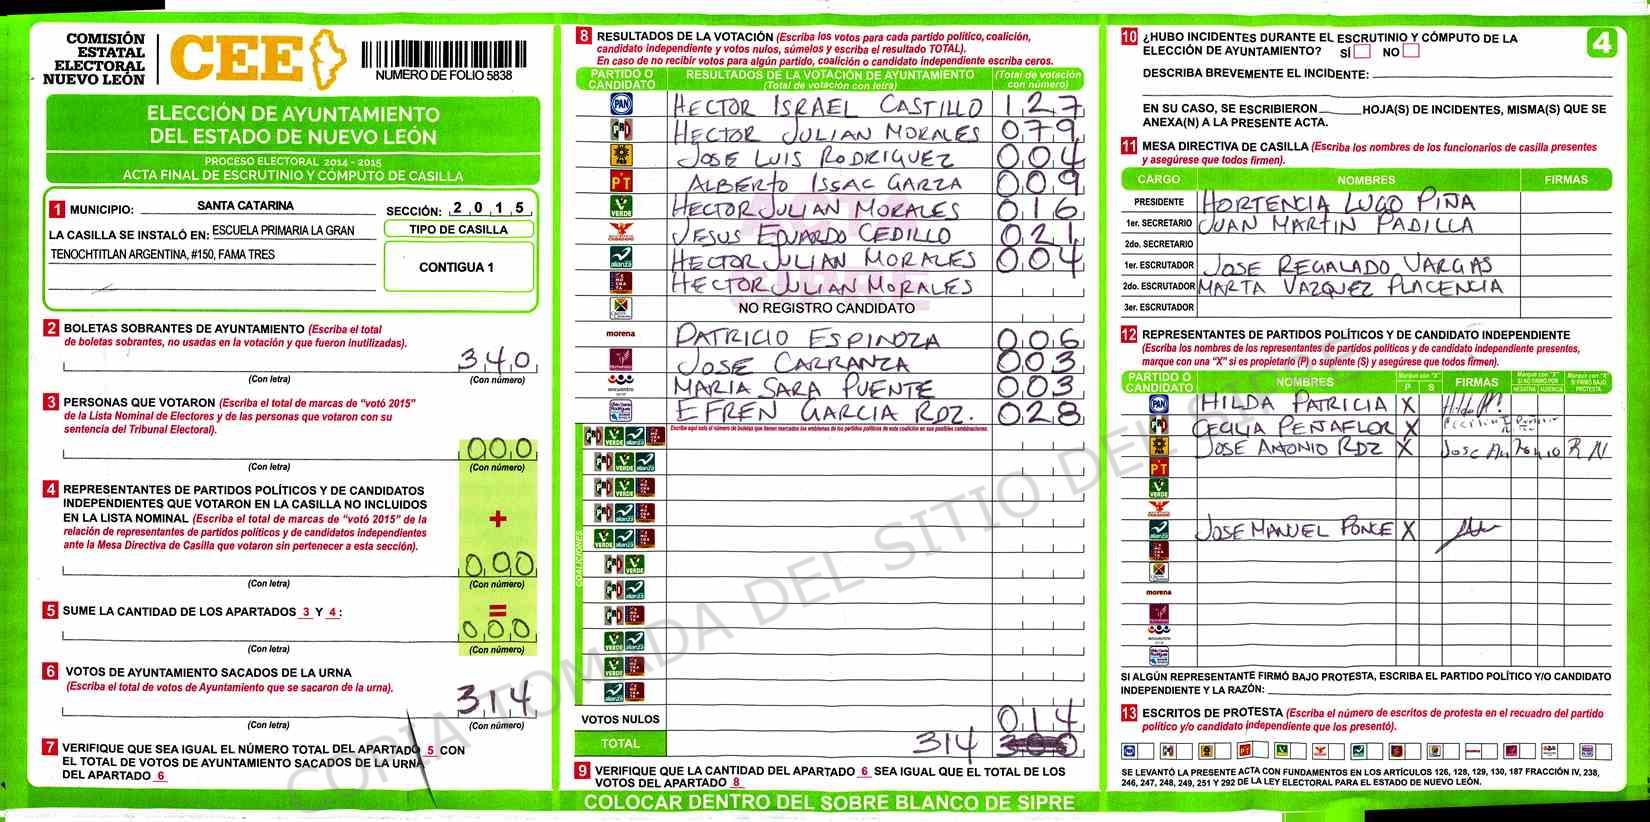 COMISIÓN
ESTATAL
ELECTORAL
NUEVO LEÓN
CEE
NUMERO DE FOLIO 5838
ELECCIÓN DE AYUNTAMIENTO
DEL ESTADO DE NUEVO LEÓN
PROCESO ELECTORAL 2014 - 2015
ACTA FINAL DE ESCRUTINIO Y CÓMPUTO DE CASILLA
1 MUNICIPIO: SANTA CATARINA
SECCIÓN: 2015
LA CASILLA SE INSTALÓ EN: ESCUELA PRIMARIA LA GRAN
TENOCHTITLAN ARGENTINA, #150, FAMA TRES
TIPO DE CASILLA
CONTIGUA 1
2 BOLETAS SOBRANTES DE AYUNTAMIENTO (Escriba el total
de boletas sobrantes, no usadas en la votación y que fueron inutilizadas).
340
(Con letra) (Con número)
3 PERSONAS QUE VOTARON (Escriba el total de marcas de "votó 2015"
de la Lista Nominal de Electores y de las personas que votaron con su
sentencia del Tribunal Electoral).
000
(Con letra) (Con número)
4 REPRESENTANTES DE PARTIDOS POLÍTICOS Y DE CANDIDATOS
INDEPENDIENTES QUE VOTARON EN LA CASILLA NO INCLUIDOS
EN LA LISTA NOMINAL (Escriba el total de marcas de "votó 2015" de la
relación de representantes de partidos políticos y de candidatos independientes
ante la Mesa Directiva de Casilla que votaron sin pertenecer a esta sección).
+
000
(Con letra) (Con número)
5 SUME LA CANTIDAD DE LOS APARTADOS 3 Y 4:
=
000
(Con letra) (Con número)
6 VOTOS DE AYUNTAMIENTO SACADOS DE LA URNA
(Escriba el total de votos de Ayuntamiento que se sacaron de la urna).
314
(Con letra) (Con número)
7 VERIFIQUE QUE SEA IGUAL EL NÚMERO TOTAL DEL APARTADO 5 CON
EL TOTAL DE VOTOS DE AYUNTAMIENTO SACADOS DE LA URNA
DEL APARTADO 6
8 RESULTADOS DE LA VOTACIÓN (Escriba los votos para cada partido político, coalición,
candidato independiente y votos nulos, súmelos y escriba el resultado TOTAL).
En caso de no recibir votos para algún partido, coalición o candidato independiente escriba ceros.
PARTIDO O CANDIDATO
RESULTADOS DE LA VOTACIÓN DE AYUNTAMIENTO
(Total de votación con letra)
(Total de votación con número)
PAN HECTOR ISRAEL CASTILLO 127
PRD HECTOR JULIAN MORALES 079
PRD JOSE LUIS RODRIGUEZ 004
PT ALBERTO ISSAC GARZA 009
VERDE HECTOR JULIAN MORALES 016
JESUS EDUARDO CEDILLO 021
alianza HECTOR JULIAN MORALES 004
HECTOR JULIAN MORALES
NO REGISTRO CANDIDATO
morena PATRICIO ESPINOZA 006
JOSE CARRANZA 003
MARIA SARA PUENTE 003
EFREN GARCIA RDZ. 028
Escriba aquí solo el número de boletas que tienen marcados los emblemas de los partidos políticos de esta coalición en sus posibles combinaciones.
COALICIONES
VOTOS NULOS 014
TOTAL 314
9 VERIFIQUE QUE LA CANTIDAD DEL APARTADO 6 SEA IGUAL QUE EL TOTAL DE LOS
VOTOS DEL APARTADO 8
COLOCAR DENTRO DEL SOBRE BLANCO DE SIPRE
4
10 ¿HUBO INCIDENTES DURANTE EL ESCRUTINIO Y CÓMPUTO DE LA
ELECCIÓN DE AYUNTAMIENTO? SÍ NO
DESCRIBA BREVEMENTE EL INCIDENTE:
EN SU CASO, SE ESCRIBIERON HOJA(S) DE INCIDENTES, MISMA(S) QUE SE
ANEXA(N) A LA PRESENTE ACTA.
11 MESA DIRECTIVA DE CASILLA (Escriba los nombres de los funcionarios de casilla presentes
y asegúrese que todos firmen).
CARGO NOMBRES FIRMAS
PRESIDENTE HORTENCIA LUGO PIÑA
1er. SECRETARIO JUAN MARTIN PADILLA
2do. SECRETARIO
1er. ESCRUTADOR JOSE REGALADO VARGAS
2do. ESCRUTADOR MARTA VAZQUEZ PLACENCIA
3er. ESCRUTADOR
12 REPRESENTANTES DE PARTIDOS POLÍTICOS Y DE CANDIDATO INDEPENDIENTE
(Escriba los nombres de los representantes de partidos políticos y de candidato independiente presentes,
marque con una "X" si es propietario (P) o suplente (S) y asegúrese que todos firmen).
PARTIDO O CANDIDATO NOMBRES P S FIRMAS
PAN HILDA PATRICIA X
CECILIA PEÑAFLOR X
JOSE ANTONIO RDZ X Jose Antonio R N
PT
VERDE
JOSE MANUEL PONCE X
morena
SI ALGÚN REPRESENTANTE FIRMÓ BAJO PROTESTA, ESCRIBA EL PARTIDO POLÍTICO Y/O CANDIDATO
INDEPENDIENTE Y LA RAZÓN:
13 ESCRITOS DE PROTESTA (Escriba el número de escritos de protesta en el recuadro del partido
político y/o candidato independiente que los presentó).
SE LEVANTÓ LA PRESENTE ACTA CON FUNDAMENTOS EN LOS ARTÍCULOS 126, 128, 129, 130, 187 FRACCIÓN IV, 238,
246, 247, 248, 249, 251 Y 292 DE LA LEY ELECTORAL PARA EL ESTADO DE NUEVO LEÓN.
COPIA TOMADA DEL SITIO DEL SIPRE
ACTA
SIPRE